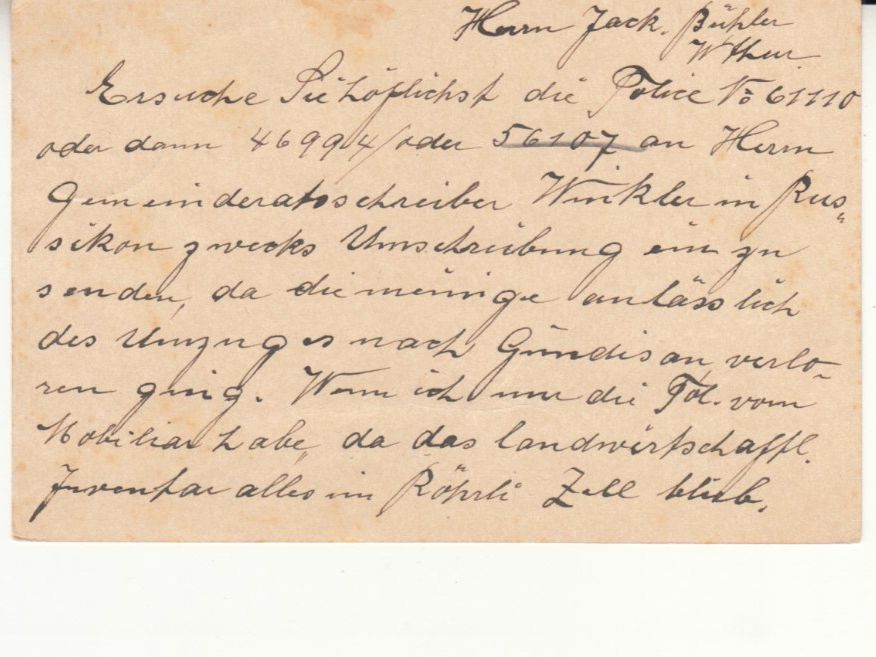 Herrn Jack. Bühler
W'thur
Ersuche Sie höflichst die Police No 61110
oder dann 46994/oder 56107 an Herrn
Gemeinderatsschreiber Winkler in Rus„
sikon zwecks Umschreibung ein zu
senden, da die meinige anlässlich
des Umzuges nach Gündisau, verlo-
ren ging. Wenn ich nur die Pol. vom
Mobiliar habe, da das landwirtschaftl.
Inventar alles im Röhrli Zell blieb.